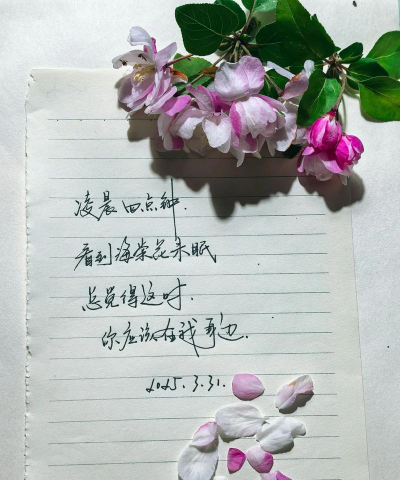 凌晨四点钟.
看到海棠花未眠
总觉得这时.
你应该在我身边.
2025.3.31.